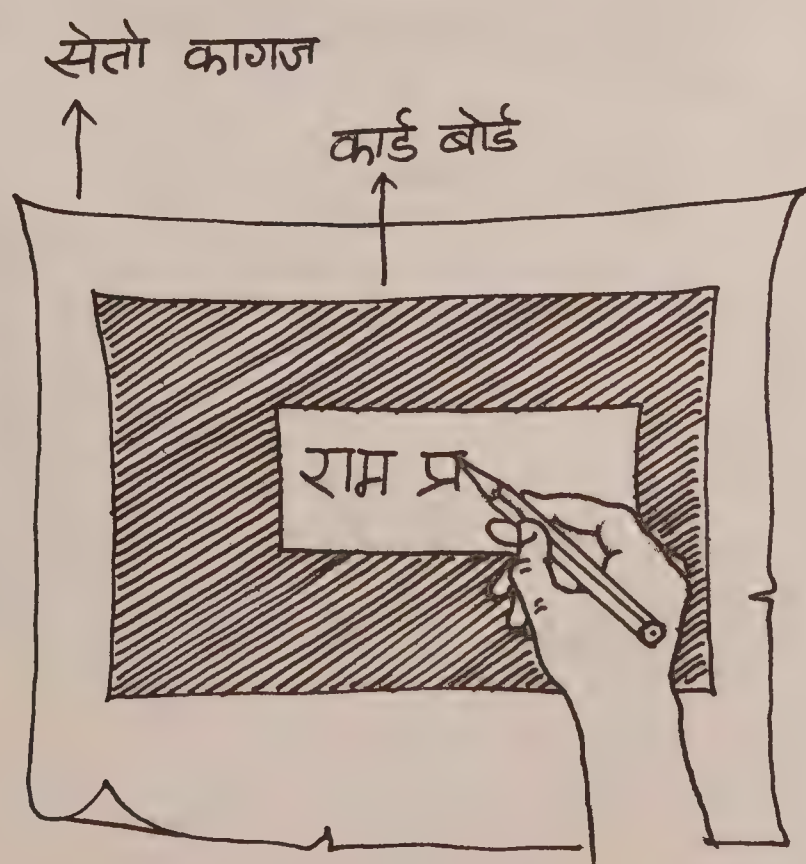 सेतो कागज
कार्ड बोर्ड
राम प्र